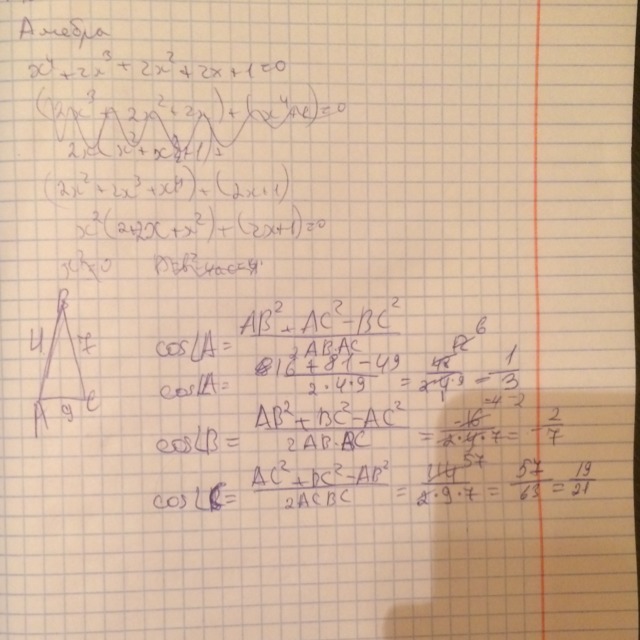 Алгебра
x⁴ + 2x³ + 2x² + 2x + 1 = 0
(2x² + 2x³ + x⁴) + (2x + 1)
x²(2 + 2x + x²) + (2x + 1) = 0
B
4 7
A 9 C
cos∠A = (AB² + AC² − BC²) / (2AB·AC)
cos∠A = (16 + 81 − 49) / (2·4·9) = 48 / (2·4·9) = 1/3
cos∠B = (AB² + BC² − AC²) / (2AB·BC) = −16 / (2·4·7) = −2/7
cos∠C = (AC² + BC² − AB²) / (2ACBC) = 114 / (2·9·7) = 57/63 = 19/21